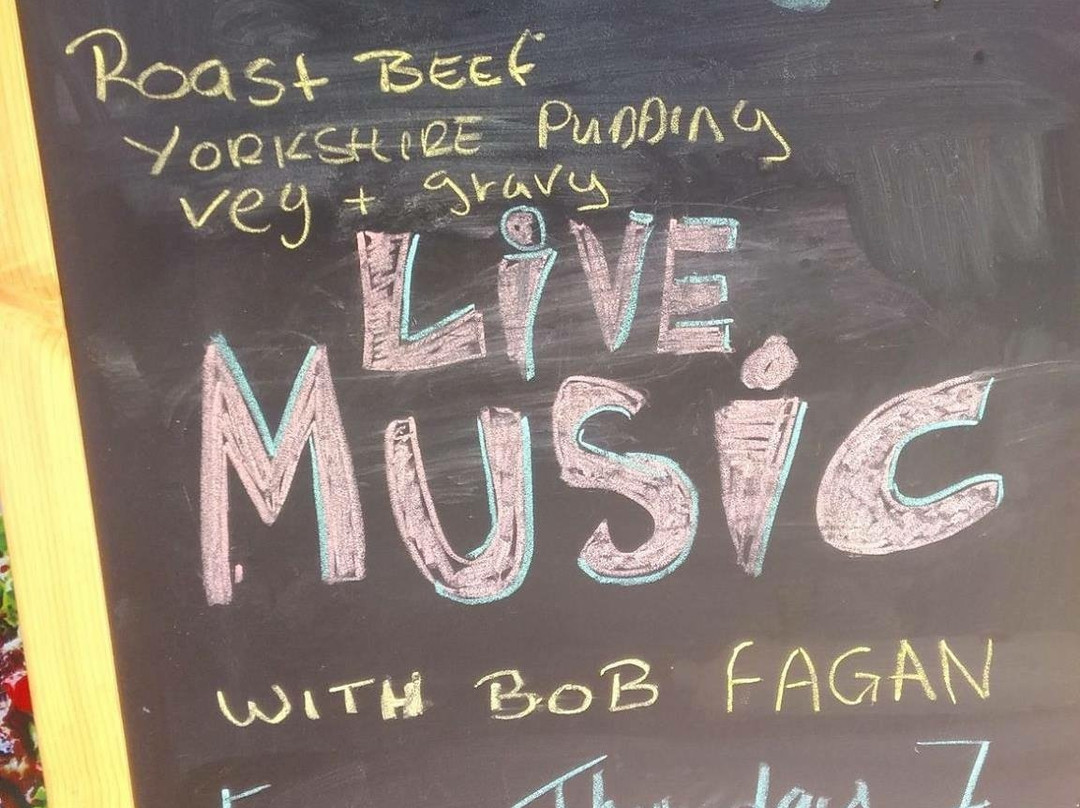 Roast BEEF
YORKSHIRE PUDDING
veg + gravy
LiVE
MUSiC
WITH BOB FAGAN
Thursday 7